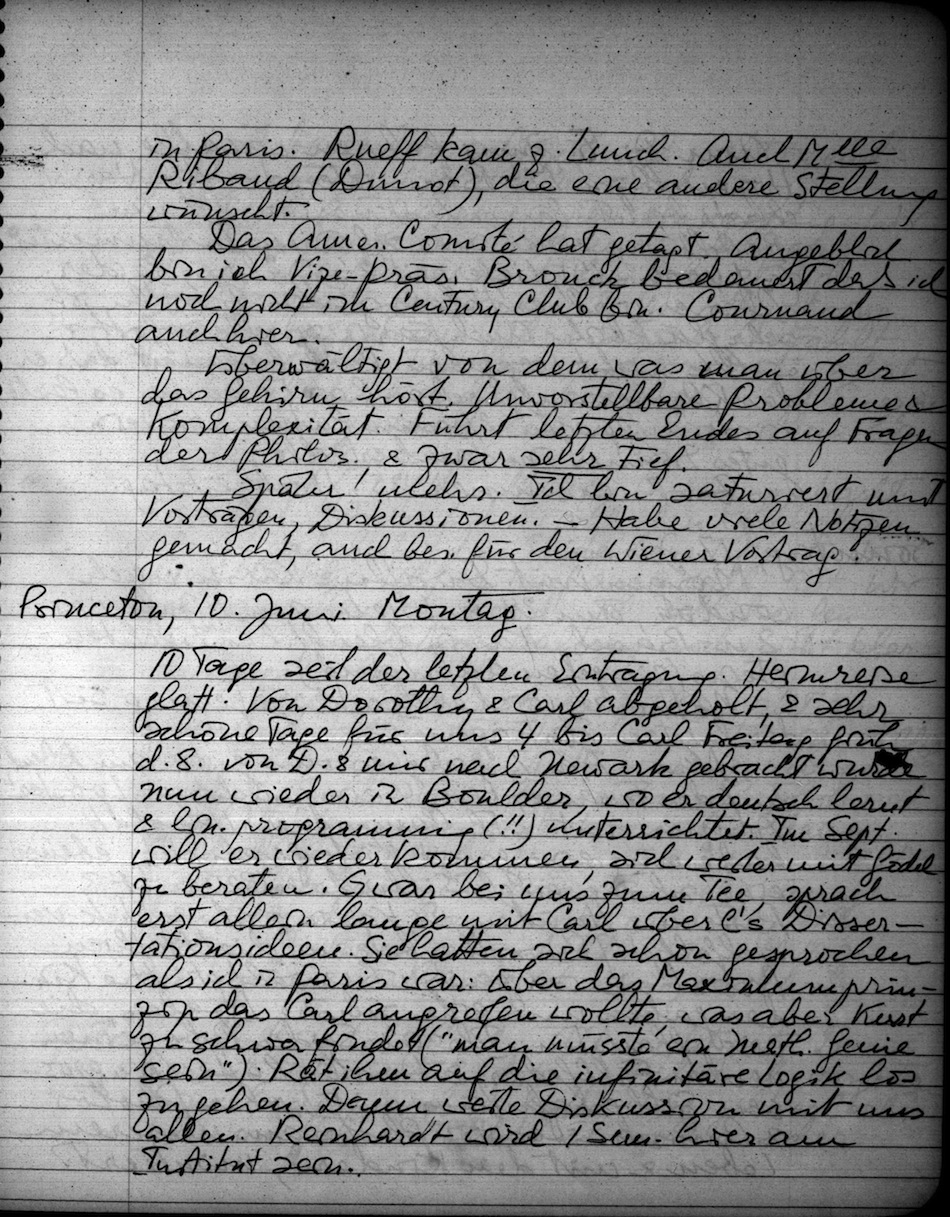 in Paris. Rueff kam z. Lunch. Auch Mlle
Ribaud (Dunot), die eine andere Stellung
wünscht.
Das Amer. Comité hat getagt. Angeblich
bin ich Vize-Präs. Bronck bedauert daß ich
noch nicht im Century Club bin. Cournand
auch hier.
Überwältigt von dem was man über
das Gehirn hört. Unvorstellbare Probleme
Komplexität. Führt letzten Endes auf Fragen
der Philos. & zwar sehr tief.
Später mehr. Ich bin saturiert mit
Vorträgen, Diskussionen. – Habe viele Notizen
gemacht, auch bes. für den Wiener Vortrag.
Princeton, 10. Juni. Montag.
10 Tage seit der letzten Eintragung. Heimreise
glatt. Von Dorothy & Carl abgeholt, & sehr
schöne Tage für uns 4 bis Carl Freitag früh
d. 8. von D. & mir nach Newark gebracht wurde
nun wieder in Boulder, wo er deutsch lernt
& lin. programming (!!) unterrichtet. Im Sept.
will er wieder kommen, sich weiter mit Gödel
zu beraten. G war bei uns zum Tee, sprach
erst allein lange mit Carl über C's Disser-
tationsideen. Sie hatten sich schon gesprochen
als ich in Paris war: über das Maximumprin-
zip das Carl angreifen wollte, was aber Kurt
zu schwer findet ("man müsste ein math. Genie
sein"). Rät ihm auf die infinitäre Logik los
zu gehen. Dann weite Diskussion mit uns
allen. Reinhardt wird 1 Sem. hier am
Institut sein.